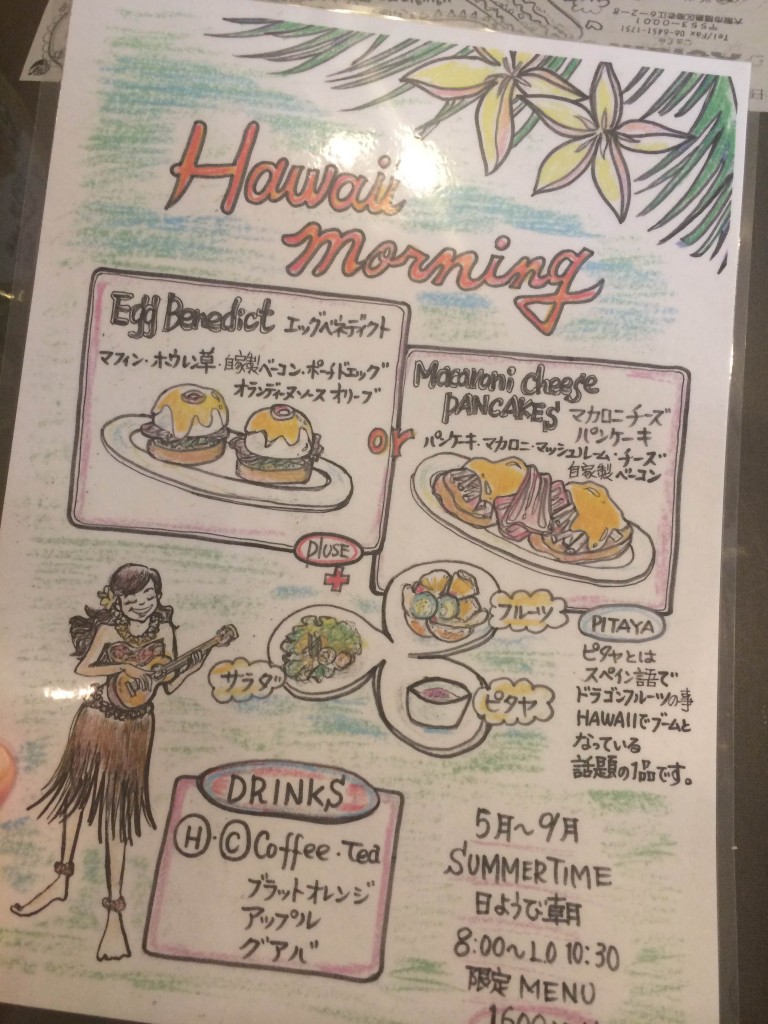 Tel/Fax 06-6451-1751
〒553-0001
Hawaii
morning
Egg Benedict エッグベネディクト
マフィン・ホウレン草・自家製ベーコン・ポーチドエッグ
オランディーヌソース オリーブ
or
Macaroni cheese
PANCAKES マカロニチーズ
パンケーキ
パンケーキ・マカロニ・マッシュルーム・チーズ
自家製ベーコン
PluSE
+
フルーツ
サラダ
ピタヤ
PITAYA
ピタヤとは
スペイン語で
ドラゴンフルーツの事
HAWAIIでブームと
なっている
話題の1品です。
DRINKS
H・C Coffee・Tea
ブラットオレンジ
アップル
グアバ
5月〜9月
SUMMERTIME
日ようび朝
8:00〜LO 10:30
限定 MENU
1600